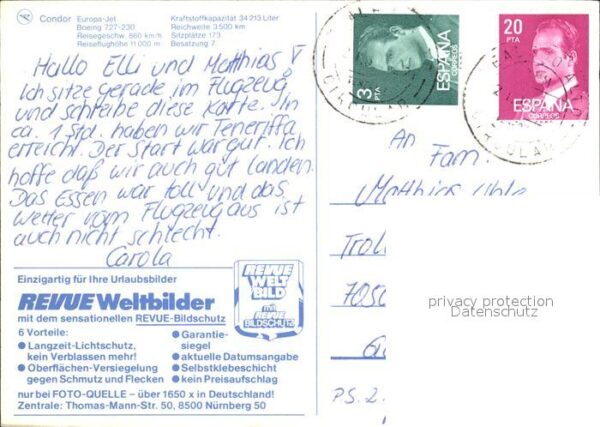 Condor Europa-Jet
Boeing 727-230
Reisegeschw. 860 km/h
Reiseflughöhe 11 000 m
Kraftstoffkapazität 34 213 Liter
Reichweite 3.500 km
Sitzplätze 173
Besatzung 7
Hallo Elli und Matthias!
Ich sitze gerade im Flugzeug
und schreibe diese Karte. In
ca. 1 Std. haben wir Teneriffa
erreicht. Der Start war gut. Ich
hoffe daß wir auch gut landen.
Das Essen war toll und das
Wetter vom Flugzeug aus ist
auch nicht schlecht.
Carola
Einzigartig für Ihre Urlaubsbilder
REVUE Weltbilder
mit dem sensationellen REVUE-Bildschutz
6 Vorteile:
● Langzeit-Lichtschutz,
kein Verblassen mehr!
● Oberflächen-Versiegelung
gegen Schmutz und Flecken
● Garantie-
siegel
● aktuelle Datumsangabe
● Selbstklebeschicht
● kein Preisaufschlag
REVUE
WELT
BILD
mit
REVUE
BILDSCHUTZ
nur bei FOTO-QUELLE – über 1650 x in Deutschland!
Zentrale: Thomas-Mann-Str. 50, 8500 Nürnberg 50
3 PTA
ESPAÑA
CORREOS
20
PTA
ESPAÑA
CORREOS
An
Fam.
Trol
705
PS. 2.
privacy protection
Datenschutz